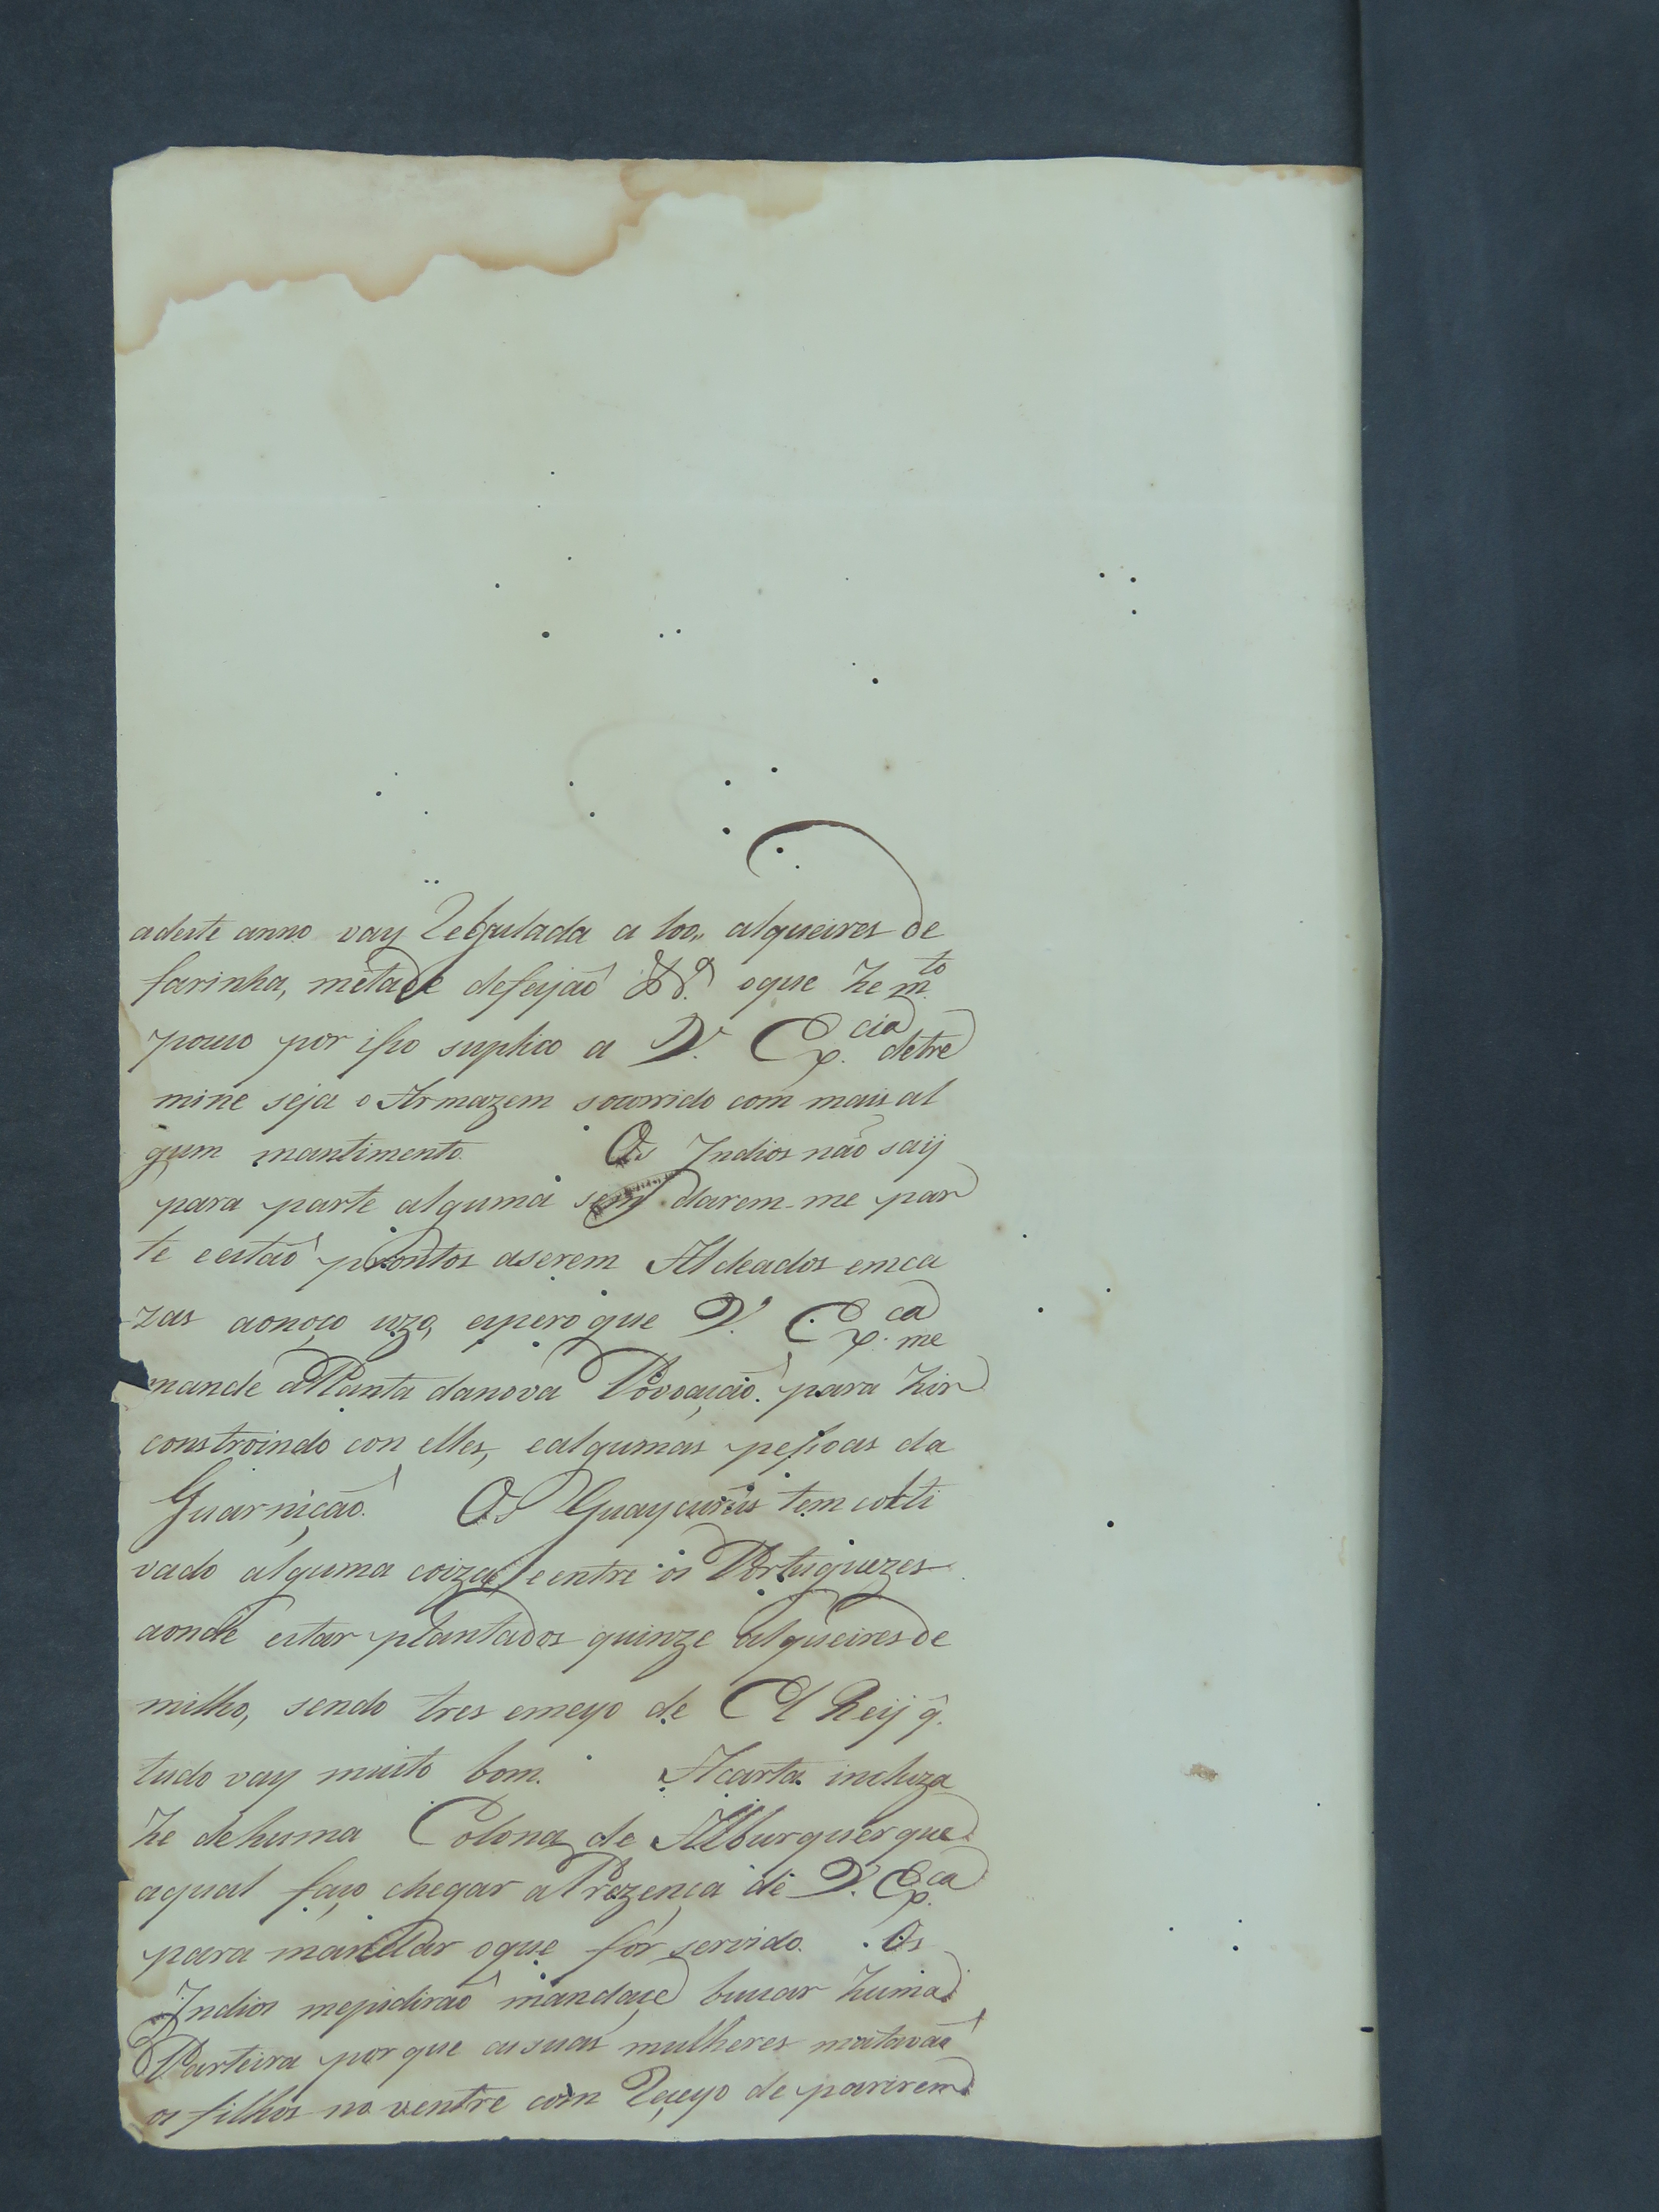 adeste anno vay Regulada a 100,, alqueires de
farinha, metade defeijaõ &.ª oque he m.to
pouco por isso suplico a V. Ex.cia detre
mine seja o Armazem socorrido com mais al
gum mantimento. Os Indios não saij
para parte alguma sem darem-me par
te eestaõ prontos aserem Aldeados emca
zas aonoço uzo, espero que V. Ex.ca me
mande aPlanta danova Povoaçaõ. para hir
construindo con elles, ealgumas pessoas da
Guarniçaõ. Os Guaycurûs tem colti
vado alguma coiza, e entre os Portuguezes
aonde estar plantados quinze alqueires de
milho, sendo tres emeyo de El Reij q̃.
tudo vay muito bom. Acarta incluza
he dehuma Colona de Alburquerque
aqual faço chegar aPrezença de V. Ex.ca
para mandar oque fôr servido. Os
Indios mepidiraõ mandaçe buscar huma
Parteira por que assuas mulheres matavaõ
os filhos no ventre com Reçeyo de parirem